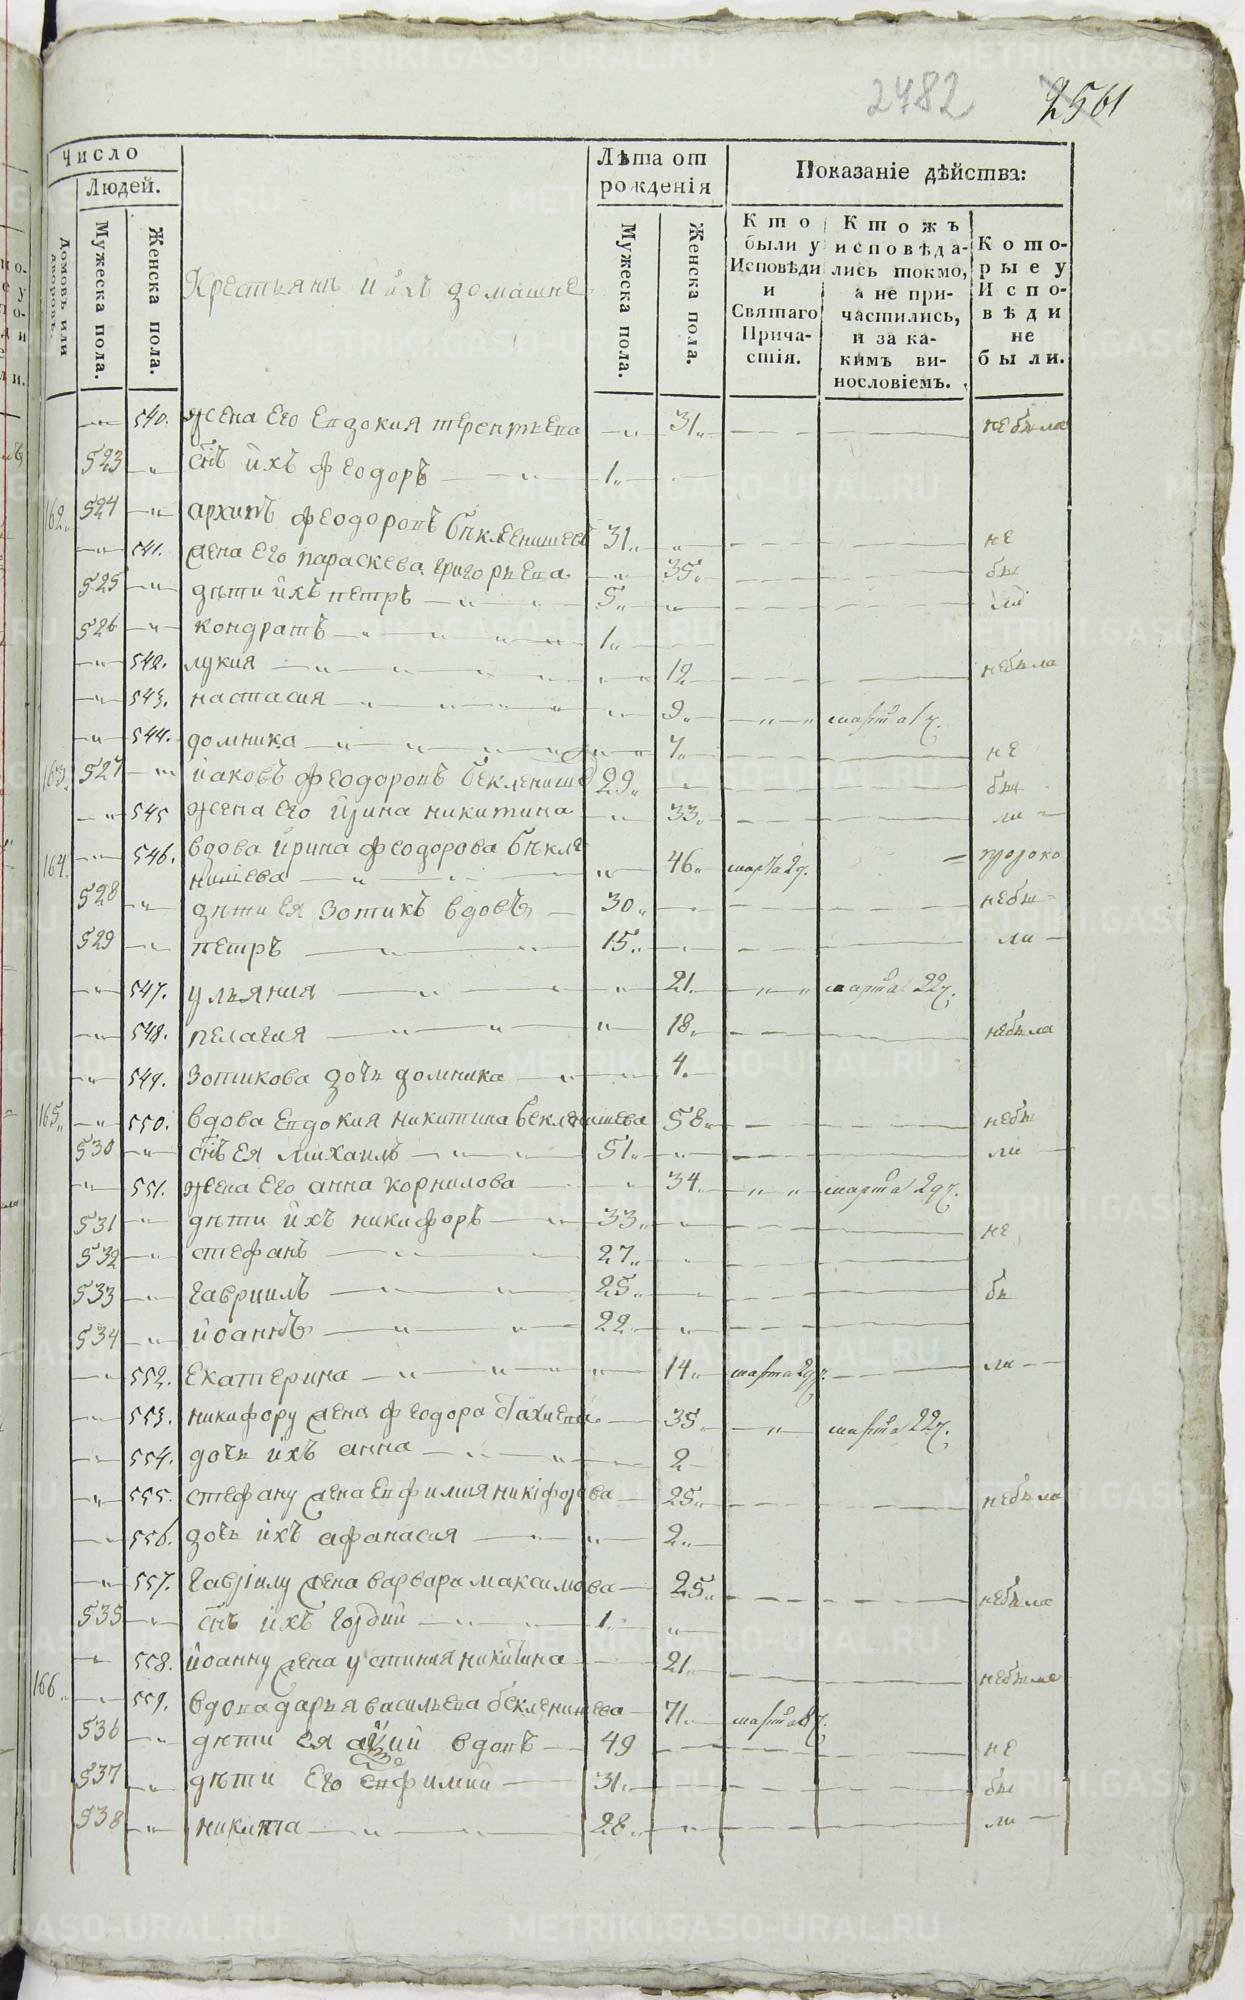 2482 2561
Число
Людей.
Домовъ или дворовъ.
Мужеска пола.
Женска пола.
Крестьянъ и ихъ домашне
Лѣта от рожденія
Мужеска пола.
Женска пола.
Показаніе дѣйства:
Кто были у Исповѣди и Святаго Причастія.
Ктожъ исповѣдались токмо, а не причастились, и за какимъ винословіемъ.
Которые у Исповѣди не были.
540. жена его евдокия терентьева 31 небыла
523 снъ ихъ феодоръ 1
162 524 архипъ феодоровъ бѣкленищевъ 31 не
541. жена его параскева григорьева 35 бы
525 дѣти ихъ петръ 5 ли
526 кондратъ 1
542. лукия 12 небыла
543. настасия 9 марта 17.
544. домника 7 не
163 527 иаковъ феодоровъ бекленище 29 бы
545 жена его ирина никитина 33 ли
164. 546. вдова ирина феодорова бѣкле 46 марта 29.
нищева
528 дѣти ея зотикъ вдовъ 30 небы
529 петръ 15 ли
547. ульяния 21 марта 22
548. пелагия 18 небыла
549. зотикова дочь домника 4.
165 550. вдова евдокия никитина бекленищева 58 небы
530 снъ ея михаилъ 51 ли
551. жена его анна корнилова 34 марта 29
531 дѣти ихъ никифоръ 33 не
532 стефанъ 27
533 гавриилъ 25 бы
534 иоаннъ 22
552. екатерина 14 марта 29 ли
553. никифору жена феодора 35 марта 22
554. дочь ихъ анна 2
555. стефану жена евфимия никифорова 25 небыла
556. дочь ихъ афанасия 2
557. гавріилу жена варвара максимова 25 небыла
535 снъ ихъ гордий 1
558. иоанну жена устиния никитина 21 небыла
166 559. вдова дарья васильева бекленищева 71 марта
536 дѣти ея вдовъ 49 не
537 дѣти его евфимий 31 бы
538 никита 28 ли
METRIKI.GASO-URAL.RU